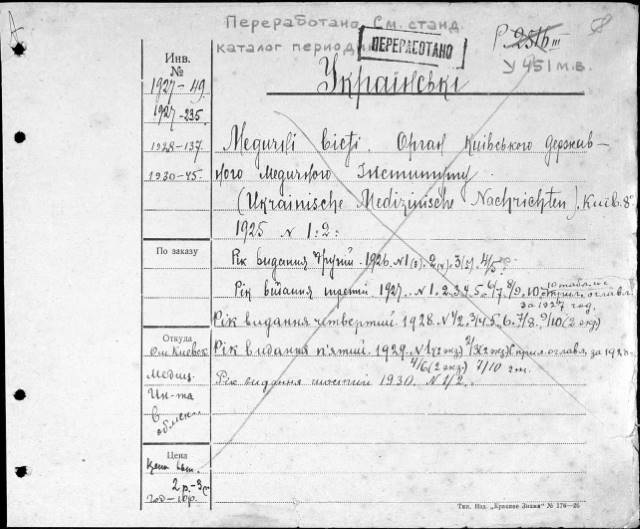 Переработано. См. станд.
каталог период
ПЕРЕРАБОТАНО
Р 2516 III
У 451 м.в.
Українські
Инв.
№
1927-49.
1927-235.
1928-137.
1930-45.
Медичні вісті. Орган Київського Держав-
ного Медичного Інституту
(Ukrainische Medizinische Nachrichten). Київ. 8°
1925 N 1. 2:
По заказу
Рік видання другий. 1926. N1(3). 2(4). 3(5). 4/5
Рік видання третій 1927. N 1. 2. 3. 4. 5. 6/7. 8/9. 10
за 1927 год.
Рік видання четвертий 1928. N 1/2. 3/4. 5. 6. 7/8. 9/10 (2 экз)
Откуда
От Киевск.
Медиц.
Ин-та
в
обмен
Рік видання п'ятий. 1929. N 1 (2 экз) 2/3 (2 экз) прил. оглавл. за 1928
4/6 (2 экз) 7/10
Рік видання шостий 1930. N 1/2.
Цена
2 р.-
год-
Тип. Изд. „Красное Знамя" № 176—26